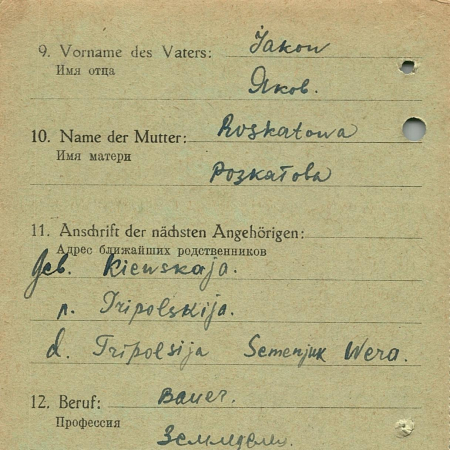 9. Vorname des Vaters: Jakow
Имя отца
Яков.
10. Name der Mutter: Roskatowa
Имя матери
Розкатова
11. Anschrift der nächsten Angehörigen:
Адрес ближайших родственников
Geb. Kiewskaja.
r. Tripolskija.
d. Tripolsija Semenjuk Wera.
12. Beruf: Bauer.
Профессия